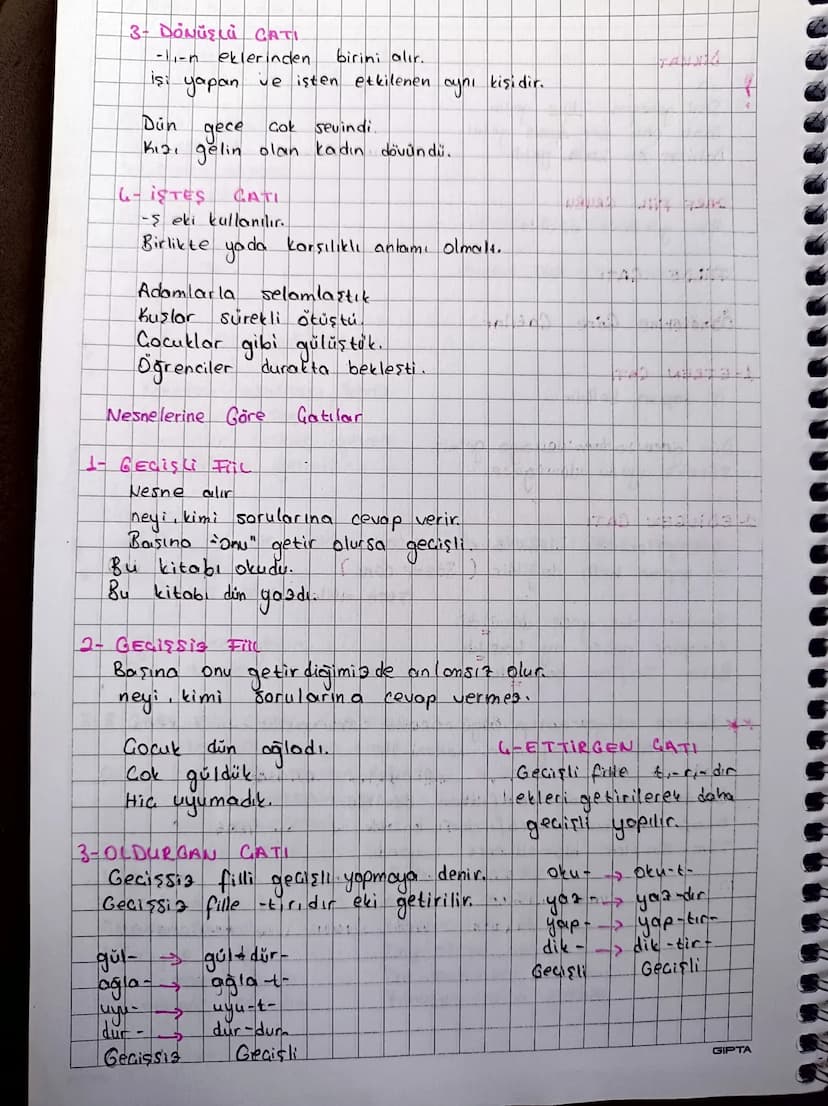 3- DÖNÜŞLÜ ÇATI
-l,-n eklerinden birini alır.
İşi yapan ve işten etkilenen aynı kişidir.
Dün gece çok sevindi.
Kızı gelin olan kadın dövündü.
4- İŞTEŞ ÇATI
-ş eki kullanılır.
Birlikte yada karşılıklı anlamı olmalı.
Adamlarla selamlaştık
Kuşlar sürekli ötüştü.
Çocuklar gibi gülüştük.
Öğrenciler durakta bekleşti.
Nesnelerine Göre Çatılar
1- GEÇİŞLİ FİİL
Nesne alır
neyi, kimi sorularına cevap verir.
Başına "onu" getir olursa geçişli.
Bu kitabı okudu.
Bu kitabı dün yazdı.
2- GEÇİŞSİZ FİİL
Başına onu getirdiğimizde anlamsız olur.
neyi, kimi sorularına cevap vermez.
Çocuk dün ağladı.
Çok güldük.
Hiç uyumadık.
3-OLDURGAN ÇATI
Geçişsiz fiili geçişli yapmaya denir.
Geçişsiz fiile -t,r,dır eki getirilir.
gül- → gül-dür-
ağla- → ağla-t-
uyu- → uyu-t-
dur- → dur-dur-
Geçişsiz Geçişli
4-ETTİRGEN ÇATI
Geçişli fiile t,-r,-dır
ekleri getirilerek daha
geçişli yapılır.
oku- → oku-t-
yaz- → yaz-dır
yap- → yap-tır-
dik- → dik-tir-
Geçişli Geçişli
GIPTA